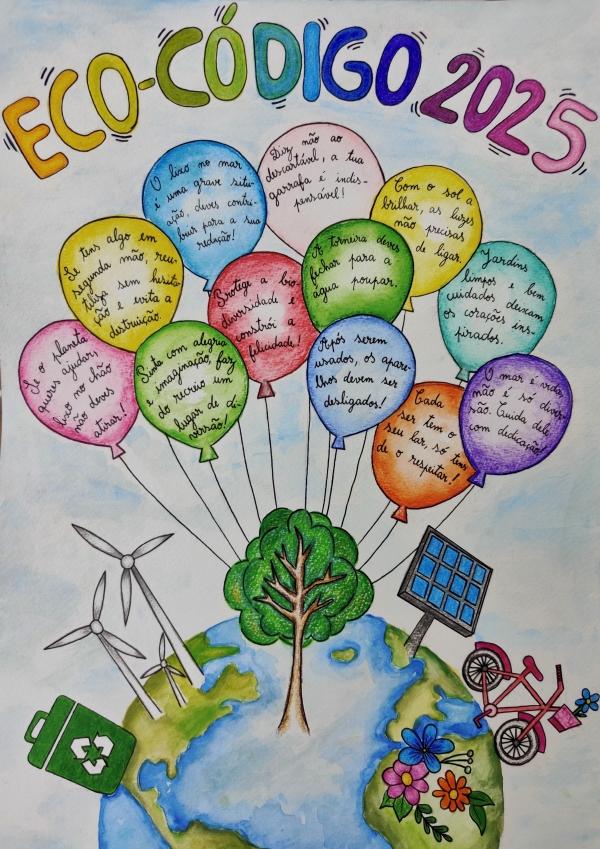 ECO-CÓDIGO 2025
O lixo no mar
é uma grave situ-
ação, deves contri-
buir para a sua
redução!
Diz não ao
descartável, a tua
garrafa é indis-
pensável!
Com o sol a
brilhar, as luzes
não precisas
de ligar.
Se tens algo em
segunda mão, reu-
tiliza sem hesita-
ção e evita a
destruição.
Protege a bio-
diversidade e
constrói a
felicidade!
A torneira deves
fechar para a
água poupar.
Jardins
limpos e bem
cuidados deixam
os corações ins-
pirados.
Se o planeta
queres ajudar,
lixo no chão
não deves
atirar!
Pinta com alegria
e imaginação, faz
do recreio um
lugar de di-
versão!
Após serem
usados, os apare-
lhos devem ser
desligados!
Cada
ser tem o
seu lar, só tens
de o respeitar!
O mar é vida,
não é só diver-
são. Cuida dele
com dedicação!